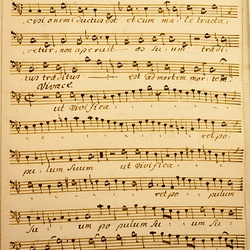 cisionem ductus est et cum male tracta-
retur, non aperuit os suum tradi-
tus traditus est ad mortem mortem.
Vivace
ut vivifica-
ret po-
pulum suum ut vivifica-
ret populum
suum populum suum su-